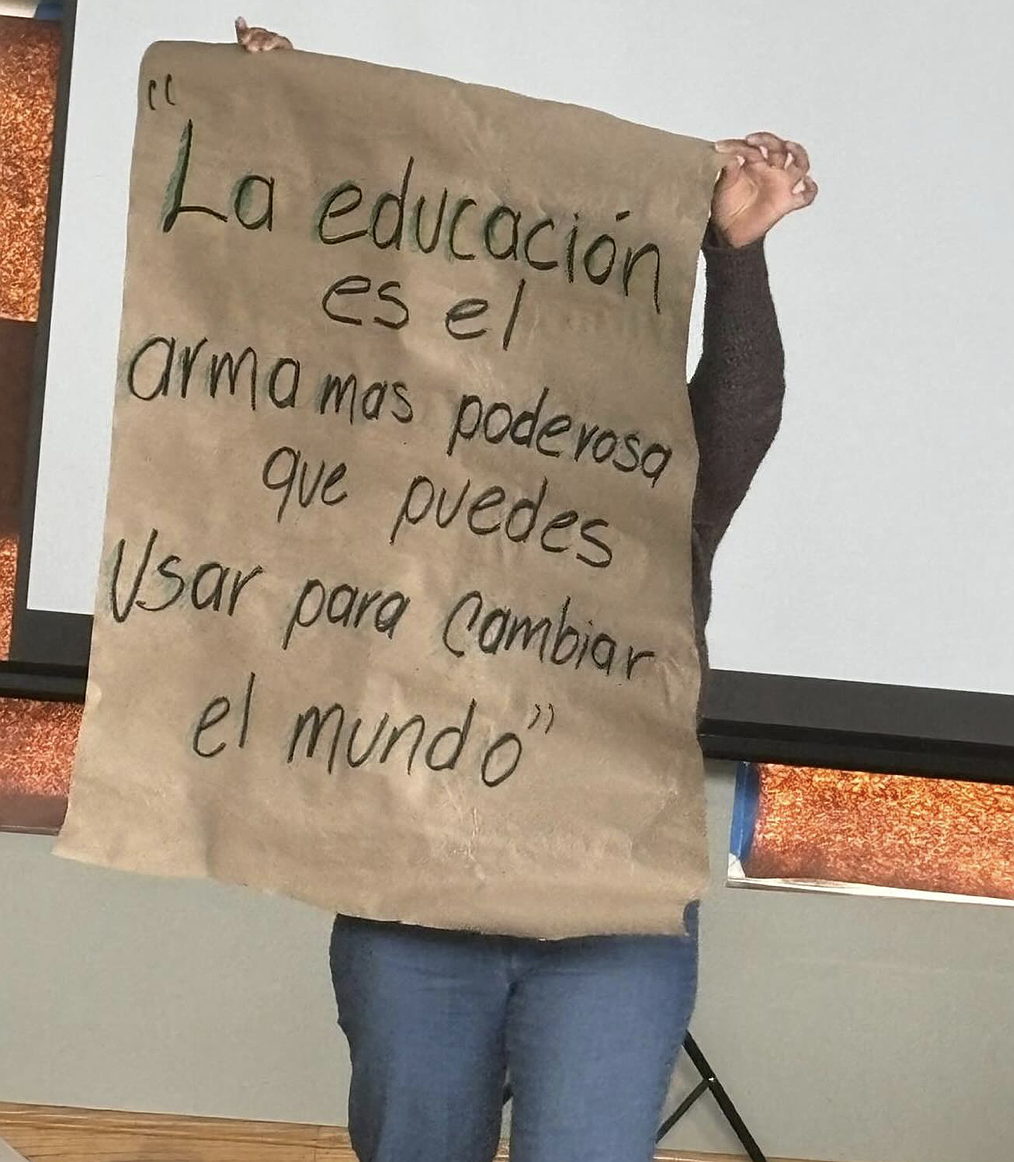 "La educación
es el
arma mas poderosa
que puedes
Usar para Cambiar
el mundo"